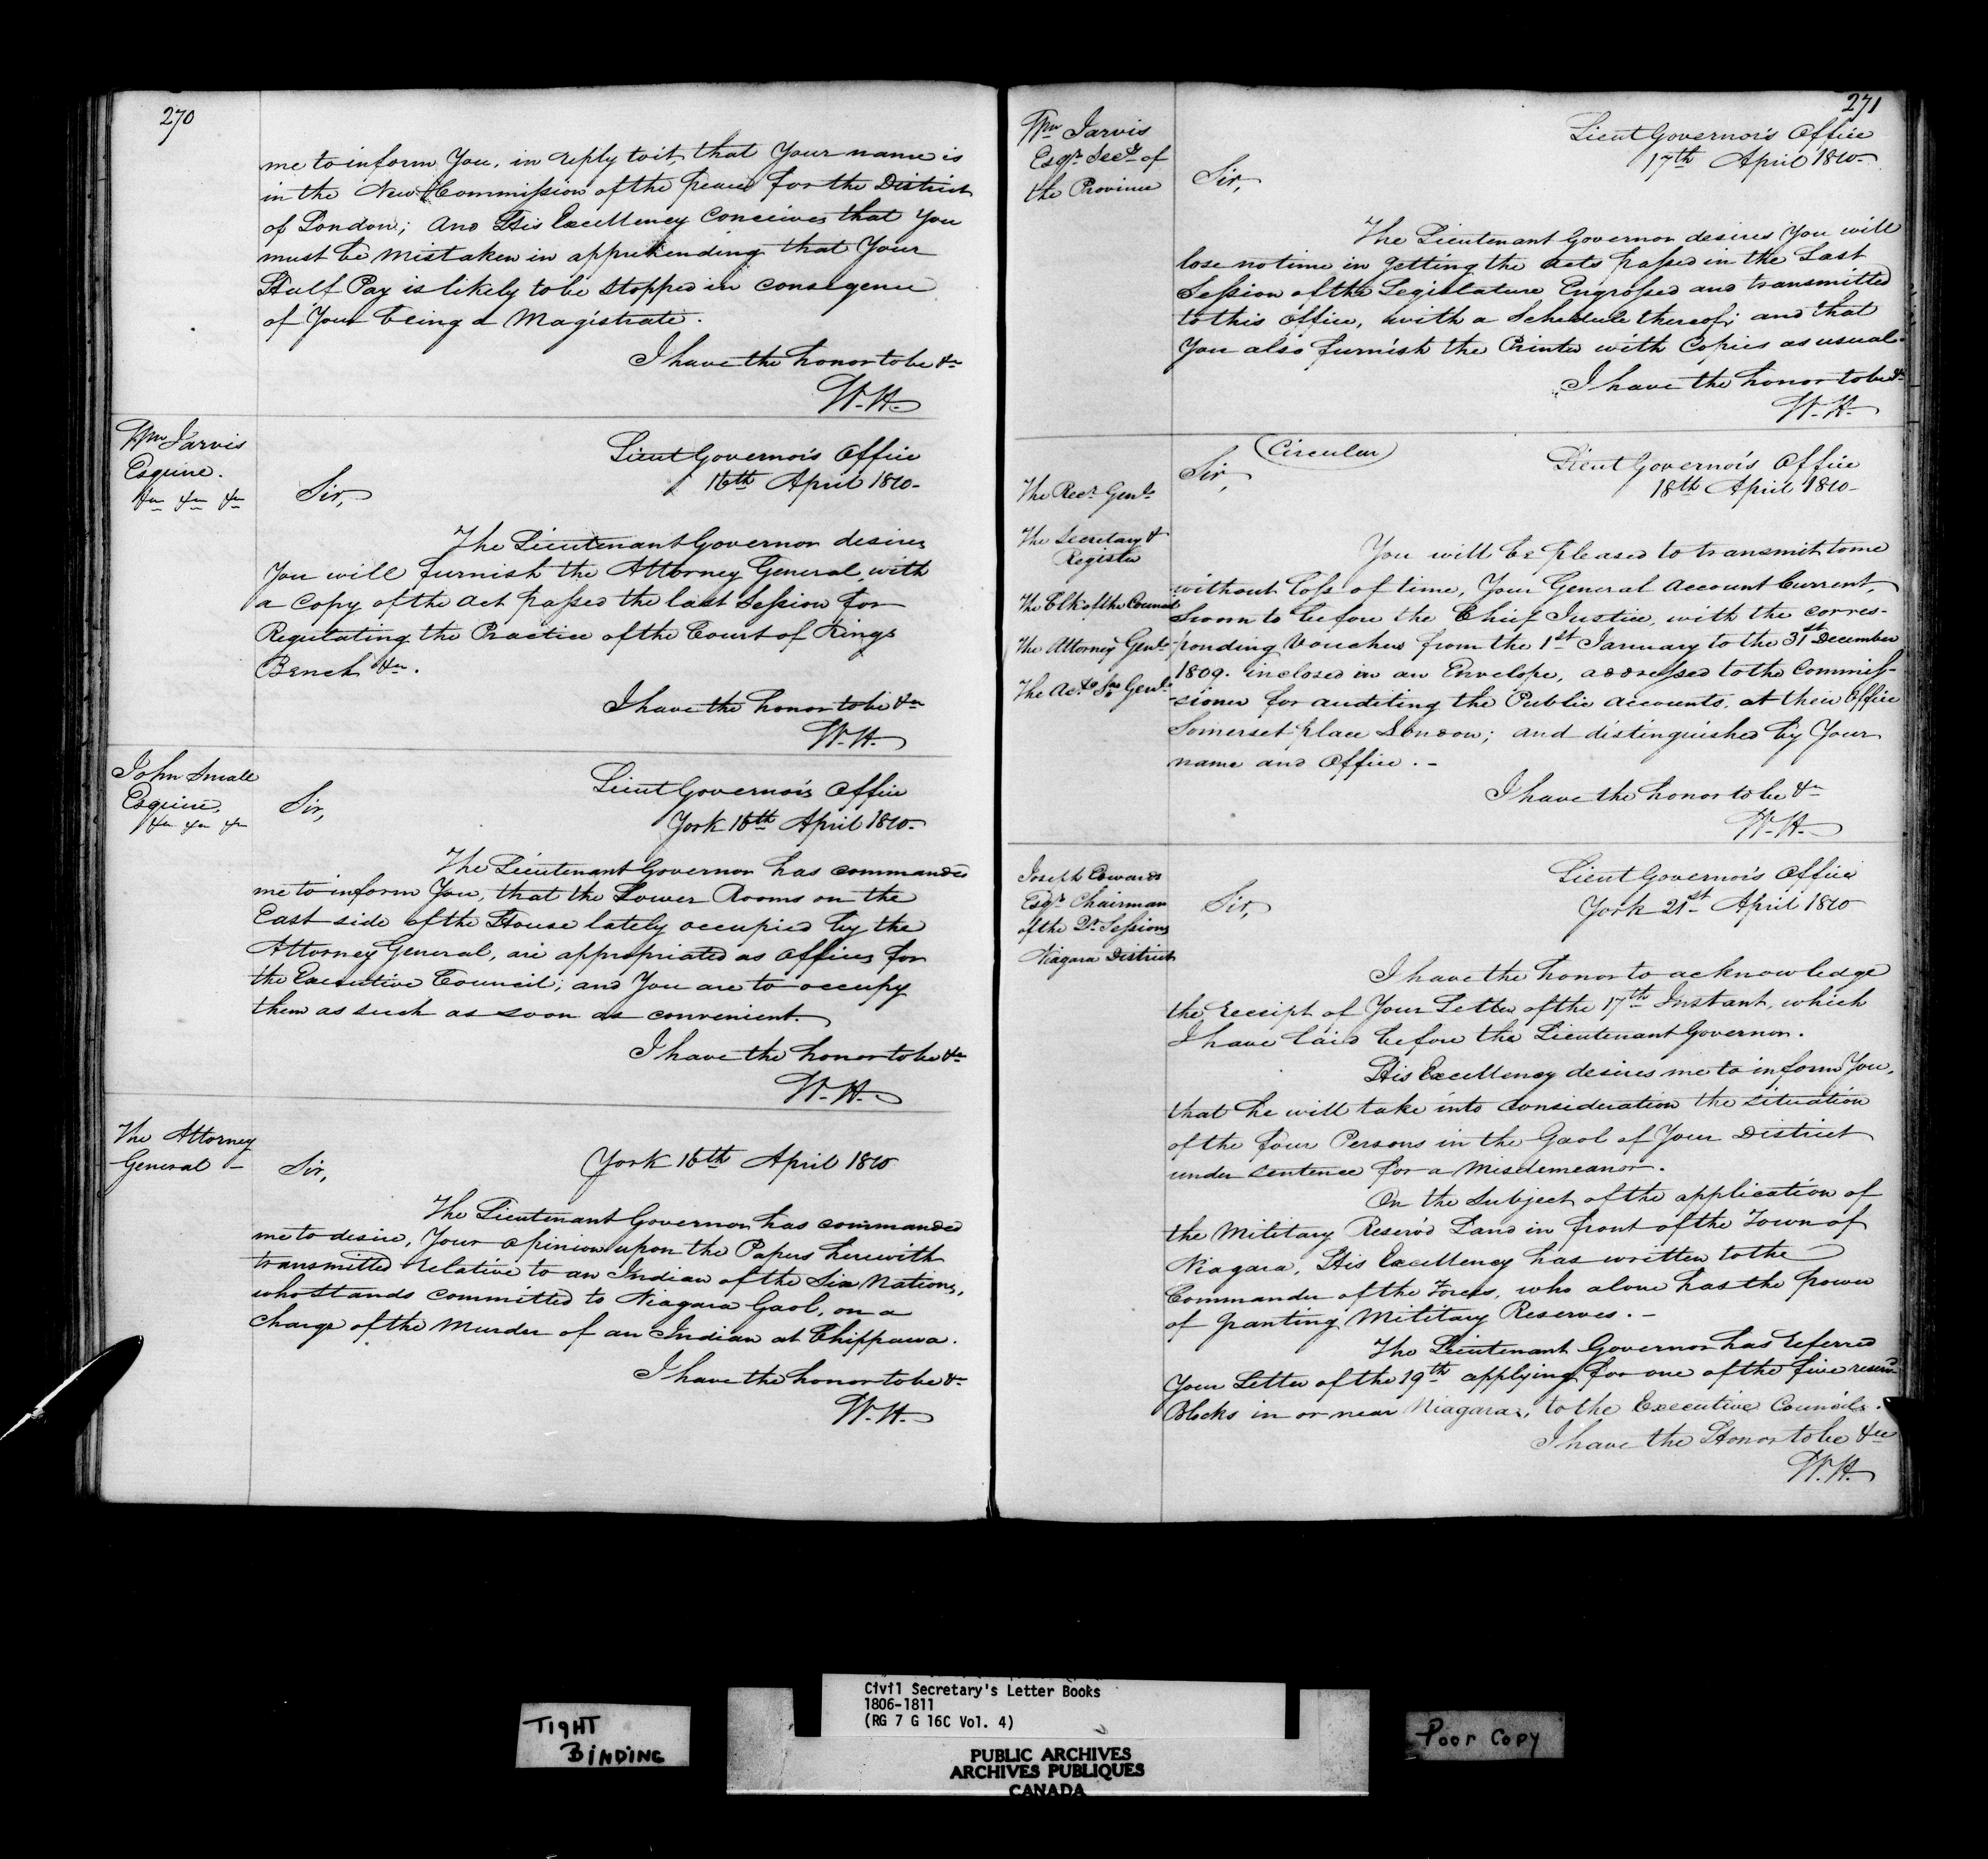 270
me to inform You, in reply to it, that Your name is
in the New Commission of the peace for the District
of London; and His Excellency Conceives that You
must be mistaken in apprehending that Your
Half Pay is likely to be stopped in consequence
of Your being a Magistrate.
I have the honor to be &c
W. H.
Wm Jarvis
Esquire.
&c &c &c
Lieut Governor's Office
16th April 1810-
Sir,
The Lieutenant Governor desires
You will furnish the Attorney General, with
a Copy of the Act passed the last Session for
Regulating the Practice of the Court of Kings
Bench &c.
I have the honor to be &c
W. H.
John Small
Esquire,
&c &c &c
Lieut Governor's Office
York 16th April 1810-
Sir,
The Lieutenant Governor has commanded
me to inform You, that the Lower Rooms on the
East side of the House lately occupied by the
Attorney General, are appropriated as Offices for
the Executive Council; and You are to occupy
them as such as soon as convenient.
I have the honor to be &c
W. H.
The Attorney
General -
York 16th April 1810
Sir,
The Lieutenant Governor has commanded
me to desire, Your opinion upon the Papers herewith
transmitted relative to an Indian of the Six Nations,
who stands committed to Niagara Gaol, on a
charge of the Murder of an Indian at Chippawa.
I have the honor to be &c
W. H.
271
Wm Jarvis
Esqr. Secy of
the Province
Lieut Governor's Office
17th April 1810-
Sir,
The Lieutenant Governor desires You will
lose no time in getting the Acts passed in the Last
Session of the Legislature Engrossed and transmitted
to this Office, with a Schedule thereof; and that
You also furnish the Printer with Copies as usual.
I have the honor to be &c
W. H.
Circular
Lieut Governor's Office
18th April 1810-
Sir,
The Recr. Genl.
The Secretary &
Register
The Clk of the Council
The Attorney Genl.
The Genl.
You will be pleased to transmit to me
without loss of time, Your General Account Current,
Sworn to before the Chief Justice, with the corres-
ponding Vouchers from the 1st January to the 31st December
1809. inclosed in an Envelope, addressed to the Commis-
-sioner for auditing the Public Accounts, at their Office
Somerset place London; and distinguished by Your
name and Office. -
I have the honor to be &c
W. H.
Joseph Edwards
Esqr. Chairman
of the Qr. Sessions
Niagara District
Lieut Governor's Office
York 21st April 1810
Sir,
I have the honor to acknowledge
the receipt of Your Letter of the 17th Instant, which
I have laid before the Lieutenant Governor.
His Excellency desires me to inform You,
that he will take into consideration the situation
of the four Persons in the Gaol of Your District
under sentence for a Misdemeanor.
On the Subject of the application of
the Military Reserv'd Land in front of the Town of
Niagara, His Excellency has written to the
Commander of the Forces, who alone has the power
of granting Military Reserves. -
The Lieutenant Governor has referred
Your Letter of the 19th applying for one of the five reserv'd
Blocks in or near Niagara, to the Executive Council.
I have the Honor to be &c
W. H.
TIGHT
BINDING
Civil Secretary's Letter Books
1806-1811
(RG 7 G 16C Vol. 4)
PUBLIC ARCHIVES
ARCHIVES PUBLIQUES
CANADA
Poor Copy